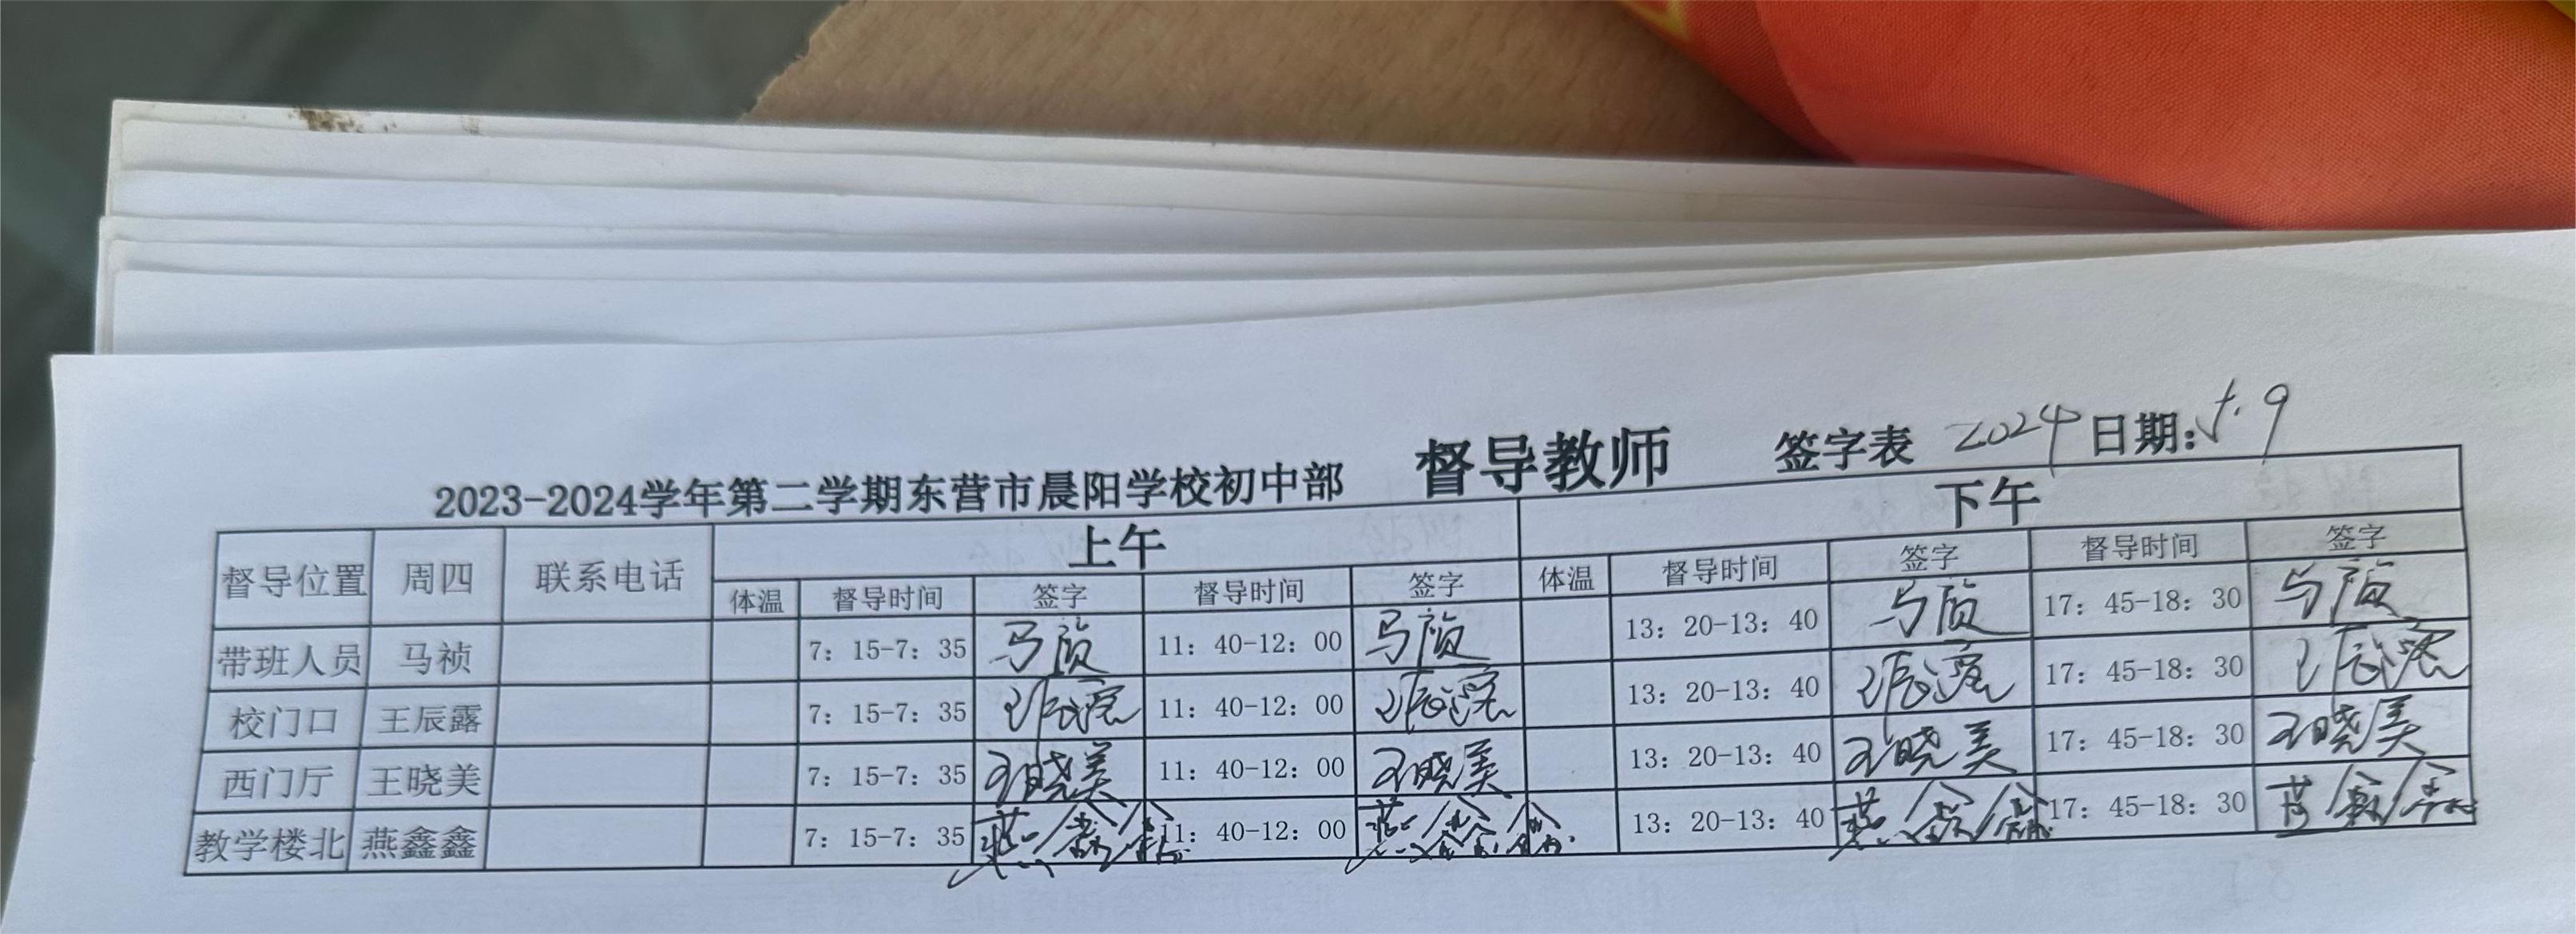 2023-2024学年第二学期东营市晨阳学校初中部 督导教师 签字表 2024 日期: 5.9
督导位置 周四 联系电话 上午 下午
体温 督导时间 签字 督导时间 签字 体温 督导时间 签字 督导时间 签字
带班人员 马祯 7: 15-7: 35 马祯 11: 40-12: 00 马祯 13: 20-13: 40 马祯 17: 45-18: 30 马祯
校门口 王辰露 7: 15-7: 35 王辰露 11: 40-12: 00 王辰露 13: 20-13: 40 王辰露 17: 45-18: 30 王辰露
西门厅 王晓美 7: 15-7: 35 王晓美 11: 40-12: 00 王晓美 13: 20-13: 40 王晓美 17: 45-18: 30 王晓美
教学楼北 燕鑫鑫 7: 15-7: 35 燕鑫鑫 11: 40-12: 00 燕鑫鑫 13: 20-13: 40 燕鑫鑫 17: 45-18: 30 燕鑫鑫